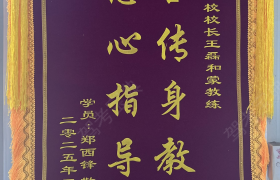 校校长王磊和蒙教练
传身教
心指导
学员:郑西锋
二零二五年